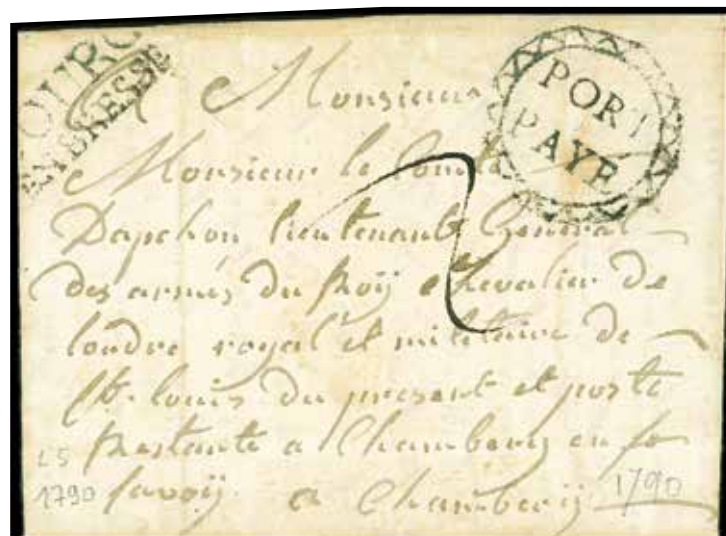 BOURG
EN BRESSE
PORT
PAYE
Monsieur
Monsieur le Comte
Dapchon lieutenant General
des armés du Roÿ chevalier de
lordre royal et militaire de
St. louis du present et poste
Restante a Chamberÿ en
savoÿ. a Chamberÿ
L5
1790
1790